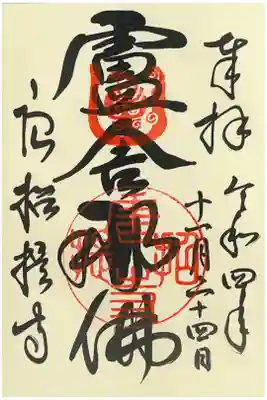 奉拝
令和四年
十一月二十四日
盧舎那佛
唐招提寺